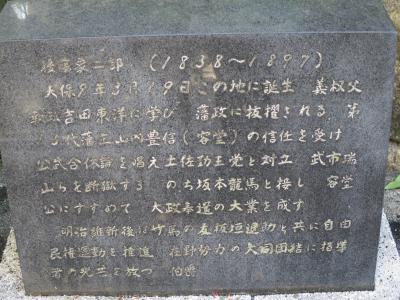 後藤象二郎 (1838~1897)
天保9年3月19日この地に誕生 義叔父
吉田東洋に学び 藩政に抜擢される 第
代藩主山内豊信(容堂)の信任を受け
公武合体論を唱え土佐勤王党と対立 武市瑞
山らを断獄する のち坂本龍馬と接し 容堂
公にすすめて 大政奉還の大業を成す
明治維新後は竹馬の友板垣退助と共に自由
民権運動を推進 在野勢力の大同団結に指導
者の光芒を放つ 伯爵